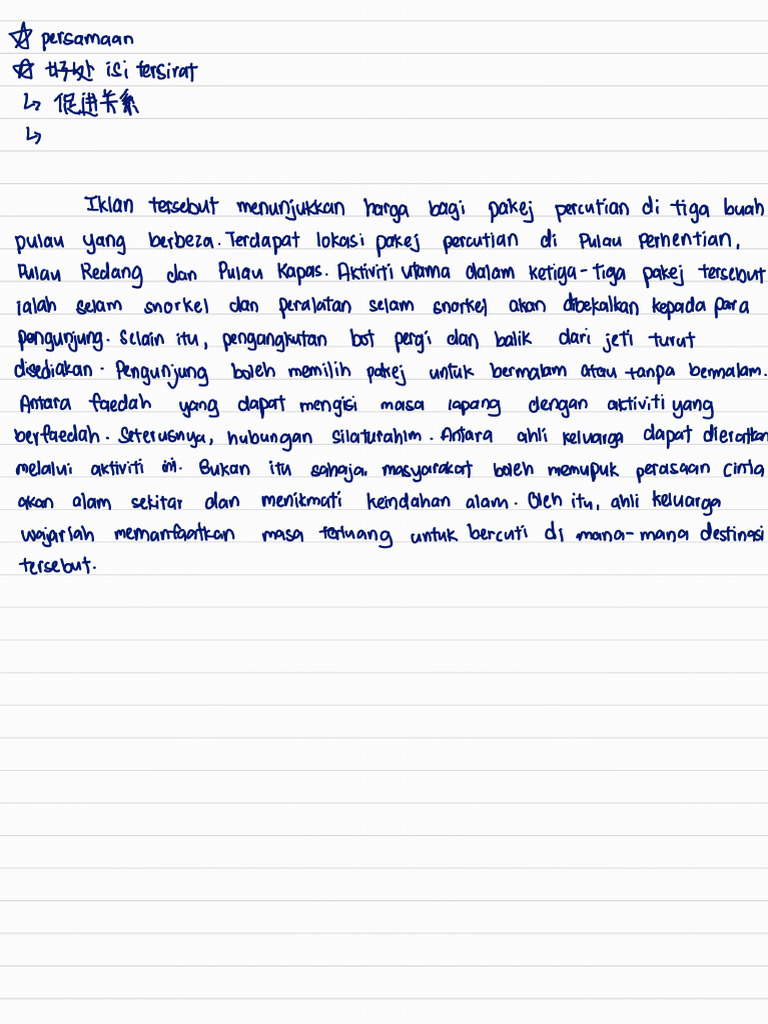 ☆ persamaan
☆ 好处 isi tersirat
↳ 促进关系
↳
Iklan tersebut menunjukkan harga bagi pakej percutian di tiga buah
pulau yang berbeza. Terdapat lokasi pakej percutian di Pulau Perhentian,
Pulau Redang dan Pulau Kapas. Aktiviti utama dalam ketiga-tiga pakej tersebut
ialah selam snorkel dan peralatan selam snorkel akan dibekalkan kepada para
pengunjung. Selain itu, pengangkutan bot pergi dan balik dari jeti turut
disediakan. Pengunjung boleh memilih pakej untuk bermalam atau tanpa bermalam.
Antara faedah yang dapat mengisi masa lapang dengan aktiviti yang
berfaedah. Seterusnya, hubungan silaturahim. Antara ahli keluarga dapat dieratkan
melalui aktiviti ini. Bukan itu sahaja, masyarakat boleh memupuk perasaan cinta
akan alam sekitar dan menikmati keindahan alam. Oleh itu, ahli keluarga
wajarlah memanfaatkan masa terluang untuk bercuti di mana-mana destinasi
tersebut.